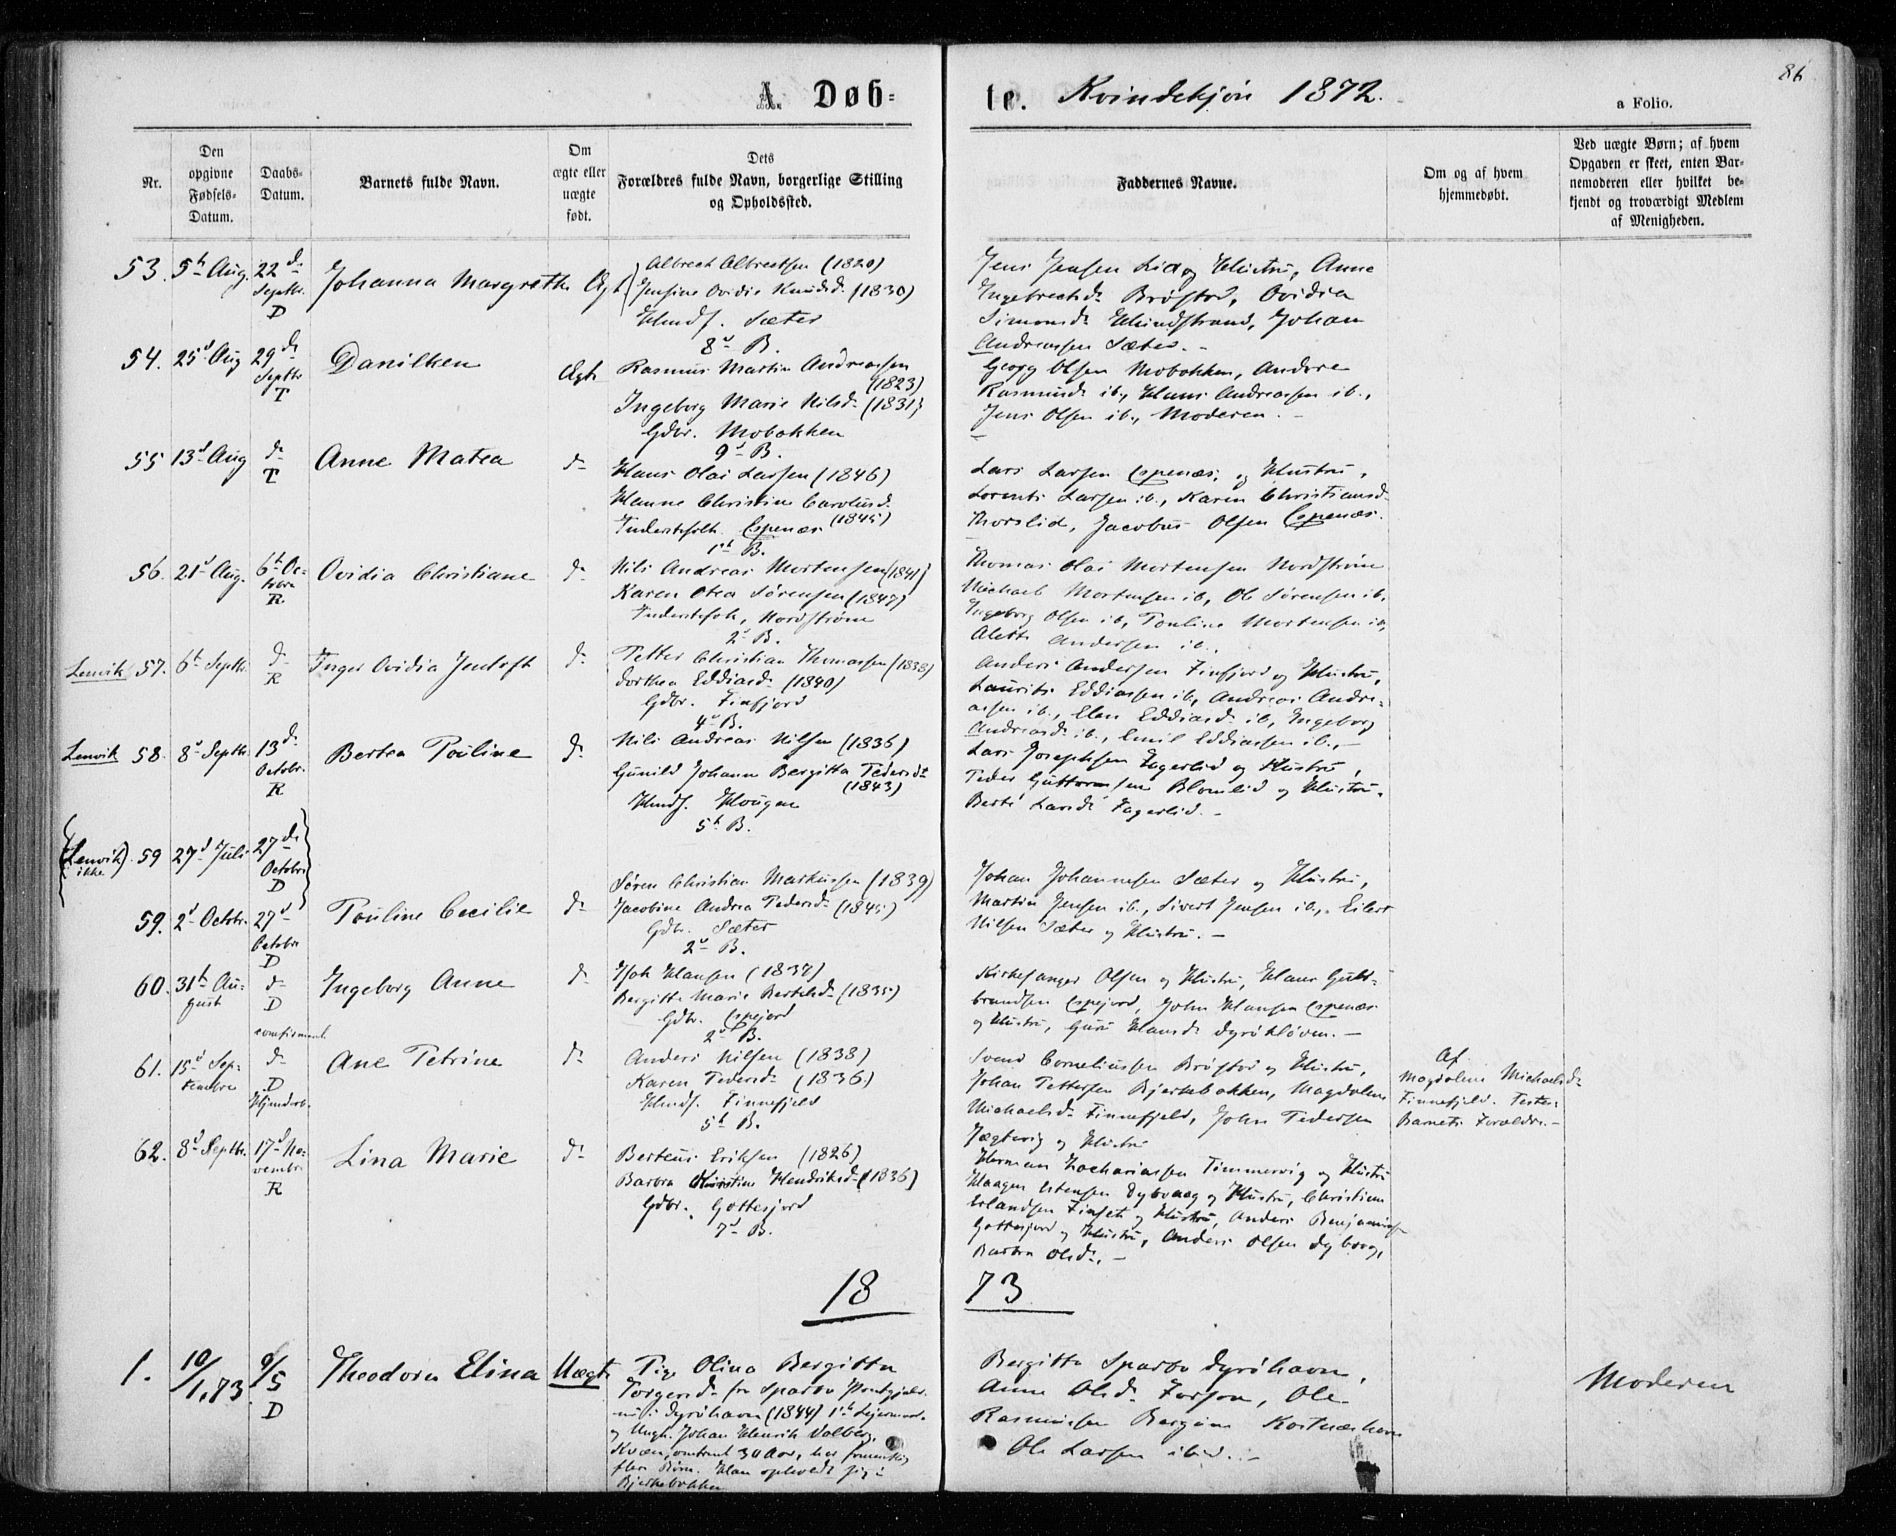 86
A. Døb-
te. Kvindekjøn 1872.
a Folio.
Nr.
Den
opgivne
Fødsels-
Datum.
Daabs-
Datum.
Barnets fulde Navn.
Om
ægte eller
uægte
født.
Dets
Forældres fulde Navn, borgerlige Stilling
og Opholdssted.
Faddernes Navne.
Om og af hvem
hjemmedøbt.
Ved uægte Børn; af hvem
Opgaven er skeet, enten Bar-
nemoderen eller hvilket be-
kjendt og troværdigt Medlem
af Menigheden.
53. 5t Aug. 22d
Septbr.
D
Johanna Margrethe Ægt
Albrect Albrectsen (1820)
Jensine Ovidie Knudsd. (1830)
Huusf. Sæter
8d B.
Jens Jensen Lia og Hustru, Anne
Ingebrectsd. Brøstad, Ovidia
Simonsd. Klundstrand, Johan
Andreassen Sæter.
54. 25d Aug 29d
Septbr
T
Danilken
Ægte
Rasmus Martin Andreassen
(1823)
Ingeborg Marie Nilsd. (1831)
Gdbr. Mobakken
9d B.
Georg Olsen Mobakken, Andore
Rasmusd. ib., Hans Andreassen ib.,
Jens Olsen ib., Moderen.
55 13d Aug do
T
Anne Matea
do
Hans Olai Larsen (1846)
Hanne Christine Carolusd.
(1845)
Inderstefolk Espenæs
1st B.
Lars Larsen Espenæs og Hustru,
Lorents Larsen ib., Karen Christiansd.
Thorslid, Jacobus Olsen Espenæs.
56. 21d Aug. 6t Oc-
tobre
R
Ovidia Christiane
do
Nils Andreas Mortensen (1841)
Karen Otea Sørensen (1847)
Inderstefok, Nordstrøm
2d B.
Thomas Olai Mortensen Nordstrøm
Michael Mortensen ib., Ole Sørensen ib.,
Ingeborg Olsen ib., Pauline Mortensen ib.,
Alette Andersen ib.
Lenvik 57. 6t Septb. do
R
Inger Ovidia Jentoft
do
Petter Christian Thomassen (1838)
Dorthea Eddiasd. (1840)
Gdbr. Finfjord
4d B.
Anders Andersen Finfjord og Hustru,
Laurits Eddiassen ib., Andreas Andre-
assen ib., Elen Eddiasd. ib., Ingeborg
Andreasd. ib., Emil Eddiassen ib.,
Lenvik 58. 8d Septbr. 13d
Octobr.
R
Bertea Pauline
do
Nils Andreas Nilsen (1836)
Gunild Johanna Bergitta Pedersdt
(1843)
Huusf. Hougen
5t B.
Lars Josephsen Fagerlid og Hustru,
Peder Guttormsen Blomlid og Hustru,
Berte Larsd. Fagerlid.
(Lenvik)
ikke
59 27d Juli 27d
Octobre
D
59. 2d Octobr. 27d
Octobre
D
Pauline Cecilie
do
Søren Christian Markussen (1839)
Jacobine Andrea Pedersd. (1845)
Gdbr. Sæter
2d B.
Johan Johannesen Sæter og Hustru,
Martin Jensen ib., Sivert Jensen ib., Eilert
Nilsen Sæter og Hustru.
60. 31t Au-
gust
do
D
Ingeborg Anne
do
Isak Hansen (1837)
Bergitte Marie Bertelsd. (1835)
Gdbr. Espejord
2d B.
Kirkesanger Olsen og Hustru, Hans Guld-
brandsen Espejord, John Hansen Espenæs
og Hustru, Guru Hansd. Dyrøkløven.
61. 15d Sep-
tembre
confirment
do
D
Hjemdøb.
Ane Petrine
do
Anders Nilsen (1838)
Karen Pedersd. (1836)
Huusf. Finnefjeld
5t B.
Svend Corneliussen Brøstad og Hustru,
Johan Pettersen Bjerkebakken, Magdalena
Michaelsd. Finnefjeld, John Pedersen
Jægtvig og Hustru
Af
Magdalena Michaelsd.
Finnefjeld. Testes:
Barnets Forældre.
62. 8d Septbr. 17d No-
vembr.
R
Lina Marie
do
Berteus Eriksen (1826)
Barbra Christine Hendriksd. (1836)
Gdbr. Gottesjord
7d B.
Herman Zachariassen Timmervig og Hustru
Haagen Estensen Dybvaag og Hustru, Christian
Erlandsen Finset og Hustru, Anders Benjaminsen
Gottesjord og Hustru, Anders Olsen Dyborg,
Barbra Olsd.
18
73
1. 10/1.73 9/5
D
Theodora Elina Uægte
Pige Olina Bergitta
Torgersd. fra Sparbo Prestegjeld.
nu i Dyrøhavn (1844) 1st Leiermaal
og Ungk. Johan Henrik Valberg,
Kvæn, omtrent 30 Aar, har formentlig
flere Børn. Han opholdt sig i
Bjerkebakken
Bergitta Sparbo Dyrøhavn,
Anne Olsd. Forson, Ole
Rasmussen Bergum Kastnæshavn
Ole Larsen ibid.
Moderen